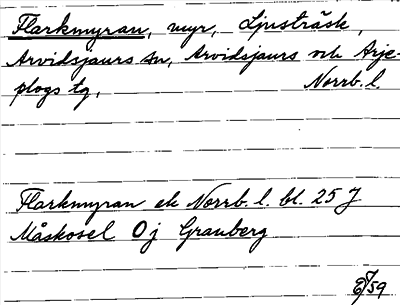 Flarkmyran, myr, Ljusträsk,
Arvidsjaurs sn, Arvidsjaurs och Arje-
plogs tg, Norrb. l.
Flarkmyran ek Norrb. l. bl. 25 J
Måskosel 0 j Granberg
/59